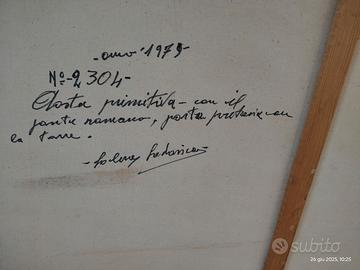 -anno 1979-
Nº-2304-
Aosta primitiva - con il
ponte romano, porta pretoria - con
la torre.
subito
26 giu 2025, 10:25